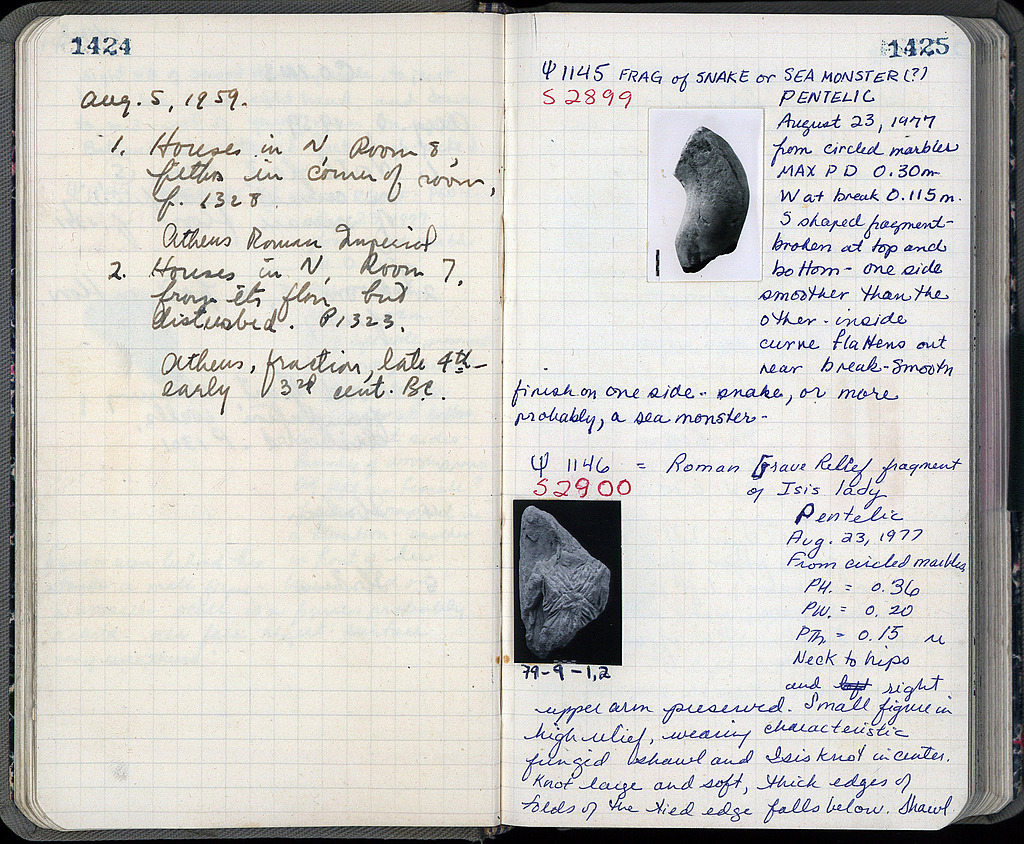 1424
Aug. 5, 1959.
1. Houses in N, Room 8,
pithos in corner of room,
p. 1328.
Athens Roman Imperial
2. Houses in N, Room 7,
from its floor but
disturbed. P1323.
Athens, fraction, late 4th-
early 3rd cent. BC.
1425
Ψ 1145 FRAG of SNAKE or SEA MONSTER (?)
S 2899 PENTELIC
August 23, 1977
from circled marbles
MAX P D 0.30m
W at break 0.115 m.
S shaped fragment-
broken at top and
bottom - one side
smoother than the
other - inside
curve flattens out
near break - smooth
finish on one side - snake, or more
probably, a sea monster -
Ψ 1146 = Roman Grave Relief fragment
S2900 of Isis lady
Pentelic
Aug. 23, 1977
From circled marbles
PH. = 0.36
PW. = 0.20
PTh. = 0.15 m
Neck to hips
79-9-1,2
and left right
upper arm preserved. Small figure in
high relief, wearing characteristic
fringed shawl and Isis knot in center.
Knot large and soft, thick edges of
folds of the tied edge falls below. Shawl